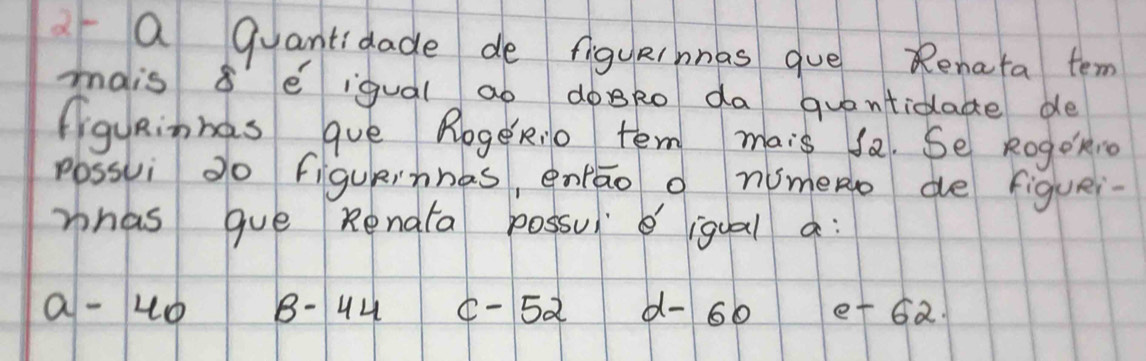 2- A quantidade de figurinhas que Renata tem
mais 8 é igual ao doBRo da quantidade de
figuRinhas que RogéRio tem mais 12. Se RogéRio
possui 20 figuRinhas, então o númeRo de figuRi-
nhas que Renata possui é igual a:
a- 40 B- 44 c- 52 d- 60 e- 62.